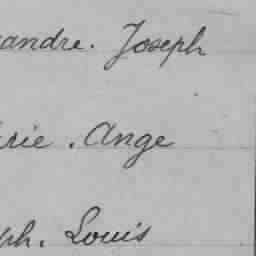 andre. Joseph
rie. Ange
ph. Louis